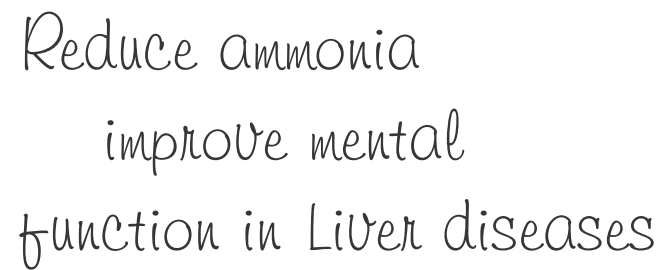 Reduce ammonia
improve mental
function in Liver diseases